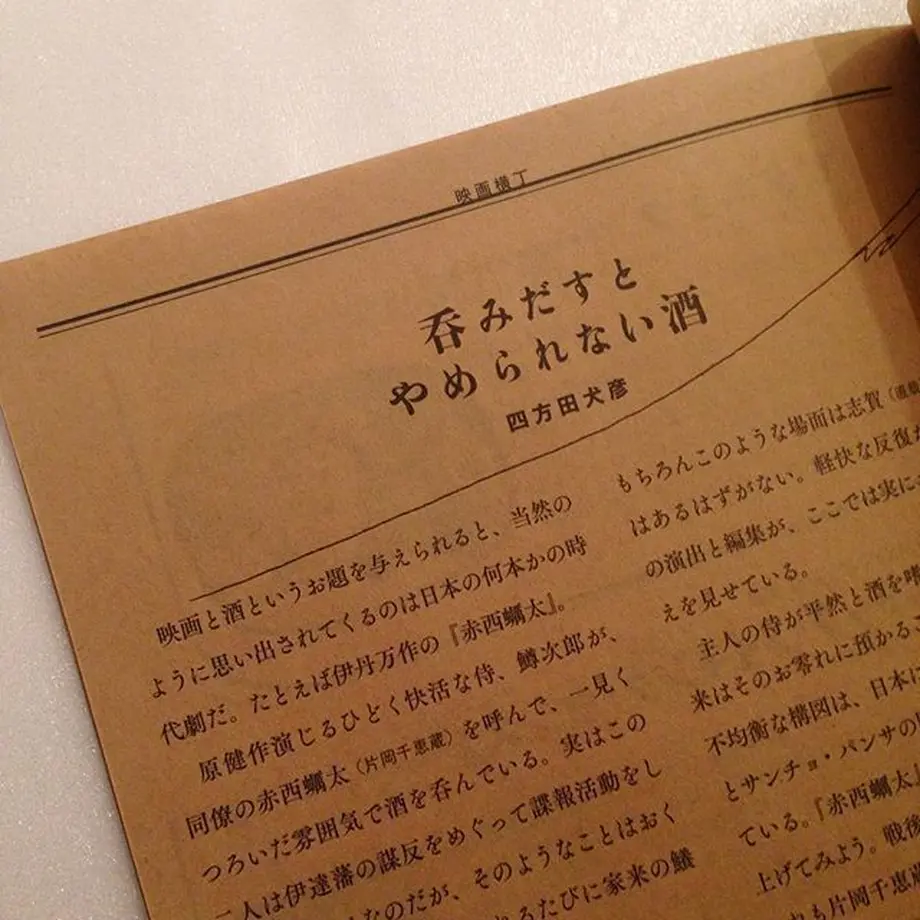 映画横丁
呑みだすと
やめられない酒
四方田犬彦
映画と酒というお題を与えられると、当然の
ように思い出されてくるのは日本の何本かの時
代劇だ。たとえば伊丹万作の『赤西蠣太』。
原健作演じるひどく快活な侍、鱒次郎が、
同僚の赤西蠣太（片岡千恵蔵）を呼んで、一見く
つろいだ雰囲気で酒を呑んでいる。実はこの
二人は伊達藩の謀反をめぐって諜報活動をし
なのだが、そのようなことはおく
るたびに家来の鱶
もちろんこのような場面は志賀（直哉
はあるはずがない。軽快な反復が
の演出と編集が、ここでは実に
えを見せている。
主人の侍が平然と酒を
来はそのお零れに預かるこ
不均衡な構図は、日本に
とサンチョ・パンサの
ている。『赤西蠣太』
上げてみよう。戦後
も片岡千恵蔵